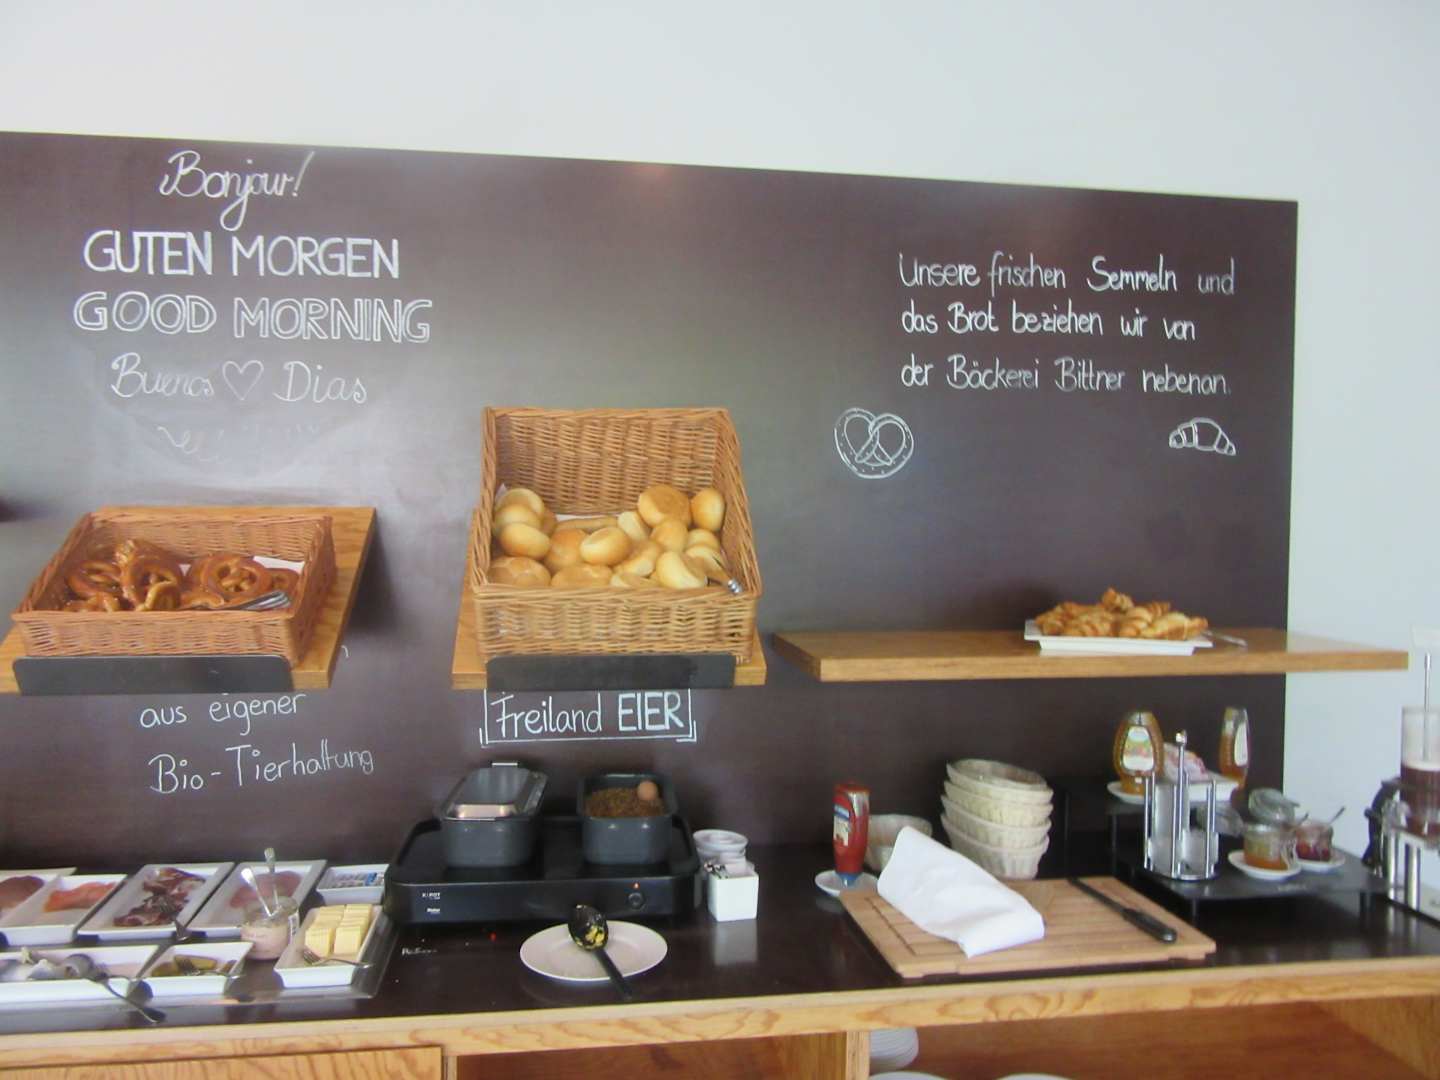 Bonjour!
GUTEN MORGEN
GOOD MORNING
Buenos Dias
Unsere frischen Semmeln und
das Brot beziehen wir von
der Bäckerei Bittner nebenan.
aus eigener
Bio-Tierhaltung
Freiland EIER